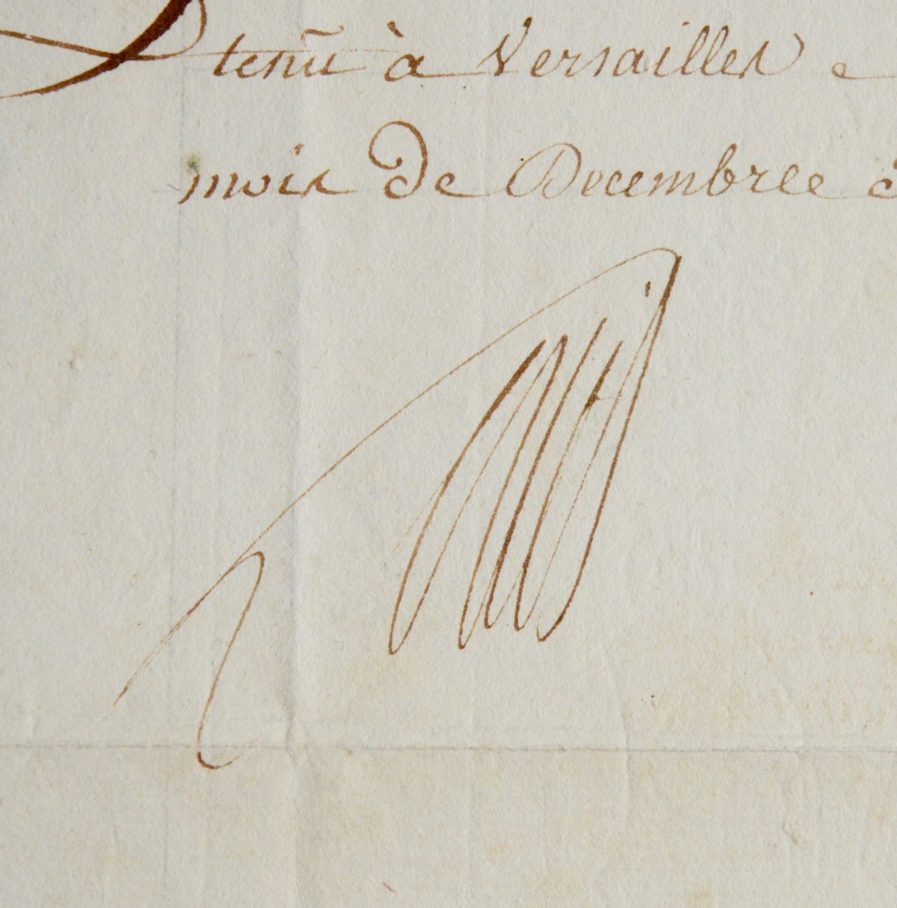 tenu à Versailles
mois de Decembre
Louis